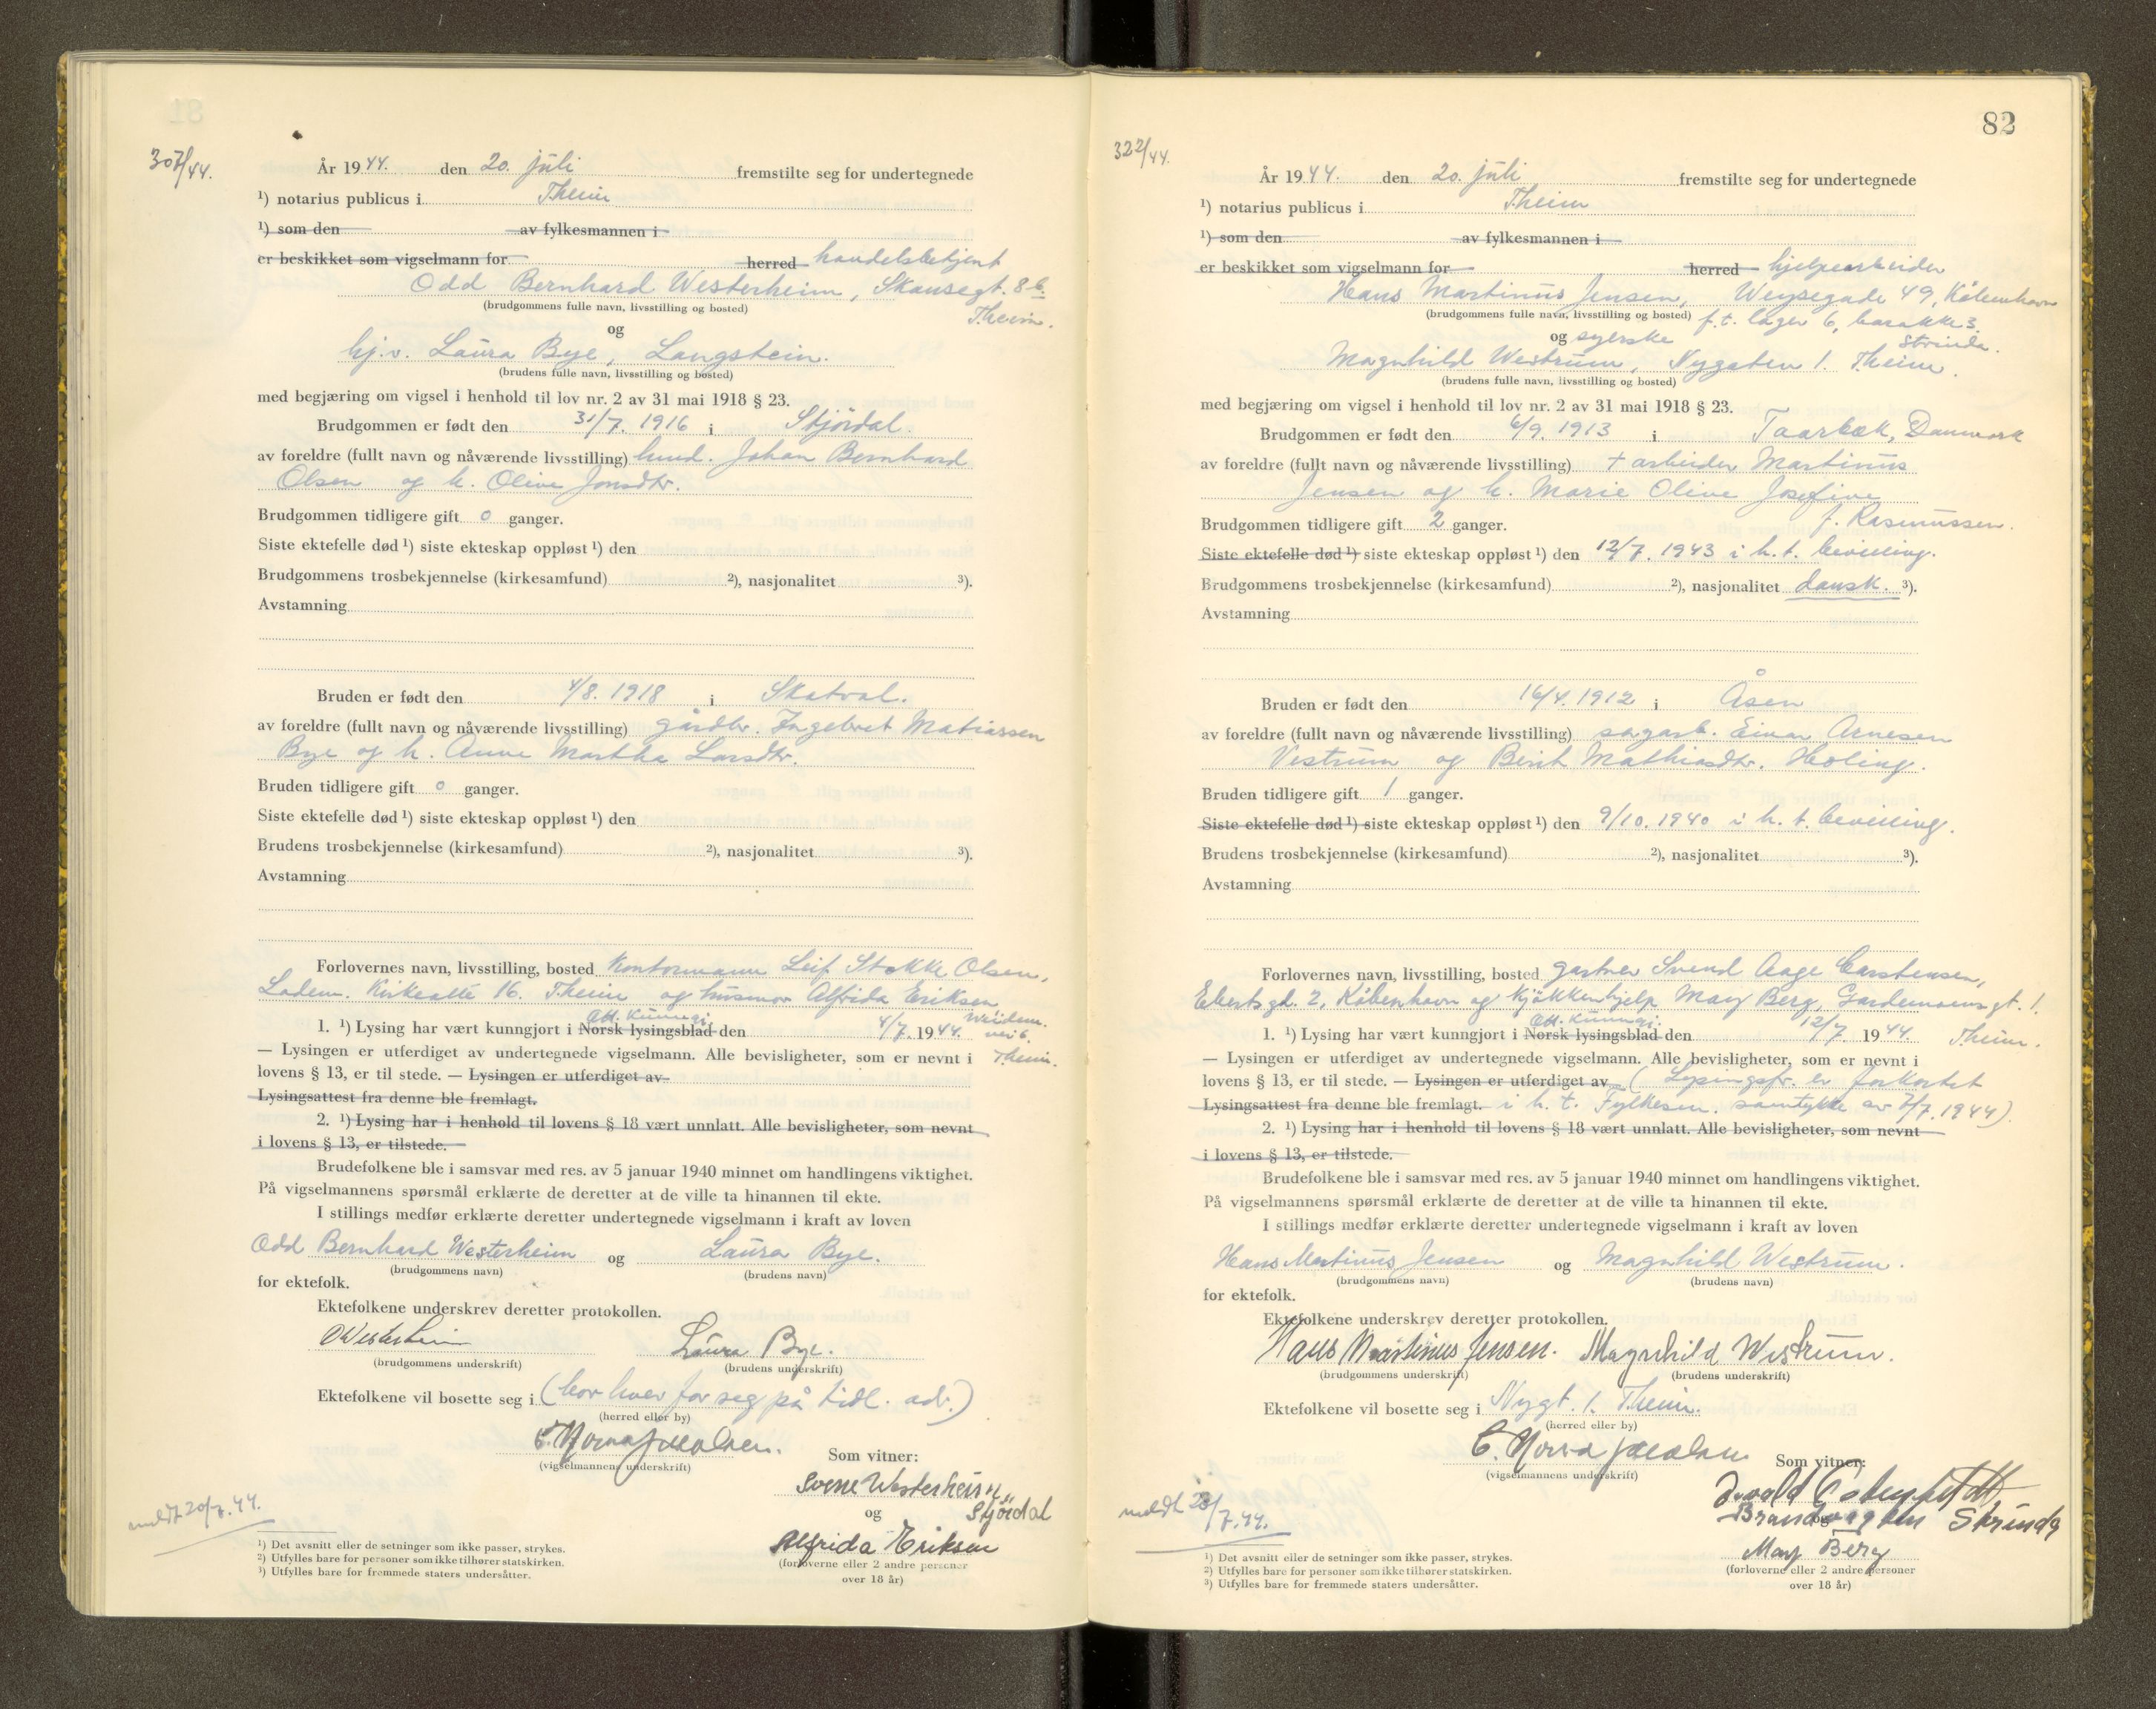 307/44.
År 1944. den 20. juli fremstilte seg for undertegnede
¹) notarius publicus i Theim
¹) som den av fylkesmannen i
er beskikket som vigselmann for herred handelsbetjent
Odd Bernhard Westerheim, Skansegt. 8 b.
(brudgommens fulle navn, livsstilling og bosted) Theim.
og
hj.v. Laura Bye, Langstein.
(brudens fulle navn, livsstilling og bosted)
med begjæring om vigsel i henhold til lov nr. 2 av 31 mai 1918 § 23.
Brudgommen er født den 31/7. 1916 i Stjördal.
av foreldre (fullt navn og nåværende livsstilling) Johan Bernhard
Olsen og h. Olive Jonsdtr.
Brudgommen tidligere gift 0 ganger.
Siste ektefelle død ¹) siste ekteskap oppløst ¹) den
Brudgommens trosbekjennelse (kirkesamfund) ²), nasjonalitet ³).
Avstamning
Bruden er født den 4/8. 1918 i Skatval.
av foreldre (fullt navn og nåværende livsstilling) gårdbr. Ingebret Matiassen
Bye og h. Anne Martha Larsdtr.
Bruden tidligere gift 0 ganger.
Siste ektefelle død ¹) siste ekteskap oppløst ¹) den
Brudens trosbekjennelse (kirkesamfund) ²), nasjonalitet ³).
Avstamning
Forlovernes navn, livsstilling, bosted Kontormann Leif Stokke Olsen,
Ladem. Kirkeallé 16. Theim og husmor Alfrida Eriksen
Att. Kunngj. Weidem.
1. ¹) Lysing har vært kunngjort i Norsk lysingsblad den 4/7. 1944. vei 6.
— Lysingen er utferdiget av undertegnede vigselmann. Alle bevisligheter, som er nevnt i Theim.
lovens § 13, er til stede. — Lysingen er utferdiget av
Lysingsattest fra denne ble fremlagt.
2. ¹) Lysing har i henhold til lovens § 18 vært unnlatt. Alle bevisligheter, som nevnt
i lovens § 13, er tilstede.
Brudefolkene ble i samsvar med res. av 5 januar 1940 minnet om handlingens viktighet.
På vigselmannens spørsmål erklærte de deretter at de ville ta hinannen til ekte.
I stillings medfør erklærte deretter undertegnede vigselmann i kraft av loven
Odd Bernhard Westerheim og Laura Bye.
(brudgommens navn) (brudens navn)
for ektefolk.
Ektefolkene underskrev deretter protokollen.
O Westerheim Laura Bye.
(brudgommens underskrift) (brudens underskrift)
Ektefolkene vil bosette seg i (bor hver for seg på tidl. adr.)
(herred eller by)
(vigselmannens underskrift) Som vitner:
Sverre Westerheim
og Stjördal
meldt 20/7.44.
Alfrida Eriksen
(forloverne eller 2 andre personer
over 18 år)
¹) Det avsnitt eller de setninger som ikke passer, strykes.
²) Utfylles bare for personer som ikke tilhører statskirken.
³) Utfylles bare for fremmede staters undersåtter.
82
322/44.
År 1944. den 20. juli fremstilte seg for undertegnede
¹) notarius publicus i Theim
¹) som den av fylkesmannen i
er beskikket som vigselmann for herred hjelpearbeider
Hans Martinus Jensen, Weysegade 49, København
(brudgommens fulle navn, livsstilling og bosted) f.t. lager 6, barakke 3.
og syerske Strinda.
Magnhild Westrum, Nygaten 1. Theim.
(brudens fulle navn, livsstilling og bosted)
med begjæring om vigsel i henhold til lov nr. 2 av 31 mai 1918 § 23.
Brudgommen er født den 6/9. 1913 i Taarbæk, Danmark
av foreldre (fullt navn og nåværende livsstilling) + arbeider Martinus
Jensen og h. Marie Olive Josefine
Brudgommen tidligere gift 2 ganger. f. Rasmussen.
Siste ektefelle død ¹) siste ekteskap oppløst ¹) den 12/7. 1943 i h. t. bevilling.
Brudgommens trosbekjennelse (kirkesamfund) ²), nasjonalitet dansk. ³).
Avstamning
Bruden er født den 16/4. 1912 i Åsen
av foreldre (fullt navn og nåværende livsstilling) sagarb. Einar Arnesen
Vestrum og Berit Mathiasdtr. Høling.
Bruden tidligere gift 1 ganger.
Siste ektefelle død ¹) siste ekteskap oppløst ¹) den 9/10. 1940 i h. t. bevilling.
Brudens trosbekjennelse (kirkesamfund) ²), nasjonalitet ³).
Avstamning
Forlovernes navn, livsstilling, bosted gartner Svend Aage Carstensen,
Ebertsgd. 2, København og kjøkkenhjelp May Berg, Gardemoensgt. 1.
Att. Kunngj.
1. ¹) Lysing har vært kunngjort i Norsk lysingsblad den 12/7 1944. Theim.
— Lysingen er utferdiget av undertegnede vigselmann. Alle bevisligheter, som er nevnt i
lovens § 13, er til stede. — Lysingen er utferdiget av (Lysingsfr. er forkortet
Lysingsattest fra denne ble fremlagt. i h. t. Fylkesm. samtykke av 7/7. 1944).
2. ¹) Lysing har i henhold til lovens § 18 vært unnlatt. Alle bevisligheter, som nevnt
i lovens § 13, er tilstede.
Brudefolkene ble i samsvar med res. av 5 januar 1940 minnet om handlingens viktighet.
På vigselmannens spørsmål erklærte de deretter at de ville ta hinannen til ekte.
I stillings medfør erklærte deretter undertegnede vigselmann i kraft av loven
Hans Martinus Jensen og Magnhild Westrum.
(brudgommens navn) (brudens navn)
for ektefolk.
Ektefolkene underskrev deretter protokollen.
Hans Martinus Jensen. Magnhild Westrum.
(brudgommens underskrift) (brudens underskrift)
Ektefolkene vil bosette seg i Nygt. 1. Theim.
(herred eller by)
(vigselmannens underskrift) Som vitner:
og Strinda
meldt 20/7.44.
May Berg
(forloverne eller 2 andre personer
over 18 år)
¹) Det avsnitt eller de setninger som ikke passer, strykes.
²) Utfylles bare for personer som ikke tilhører statskirken.
³) Utfylles bare for fremmede staters undersåtter.